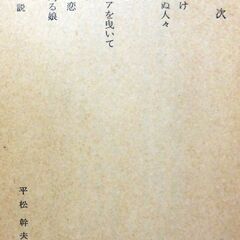 次
け
ぬ人々
アを曳いて
恋
る娘
説
平松幹夫